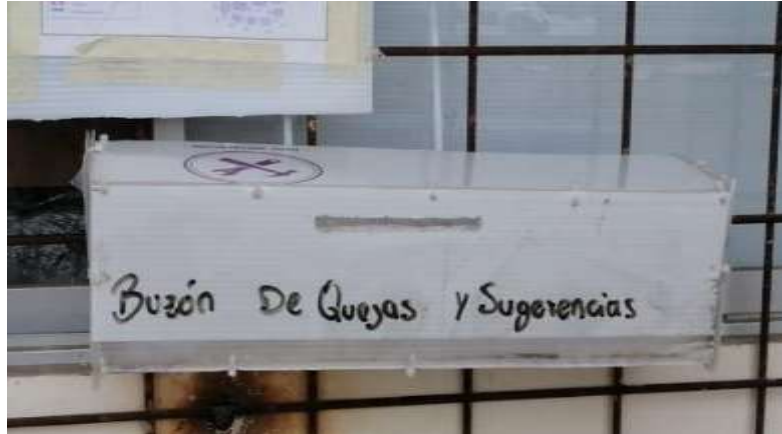 Buzón De Quejas y Sugerencias